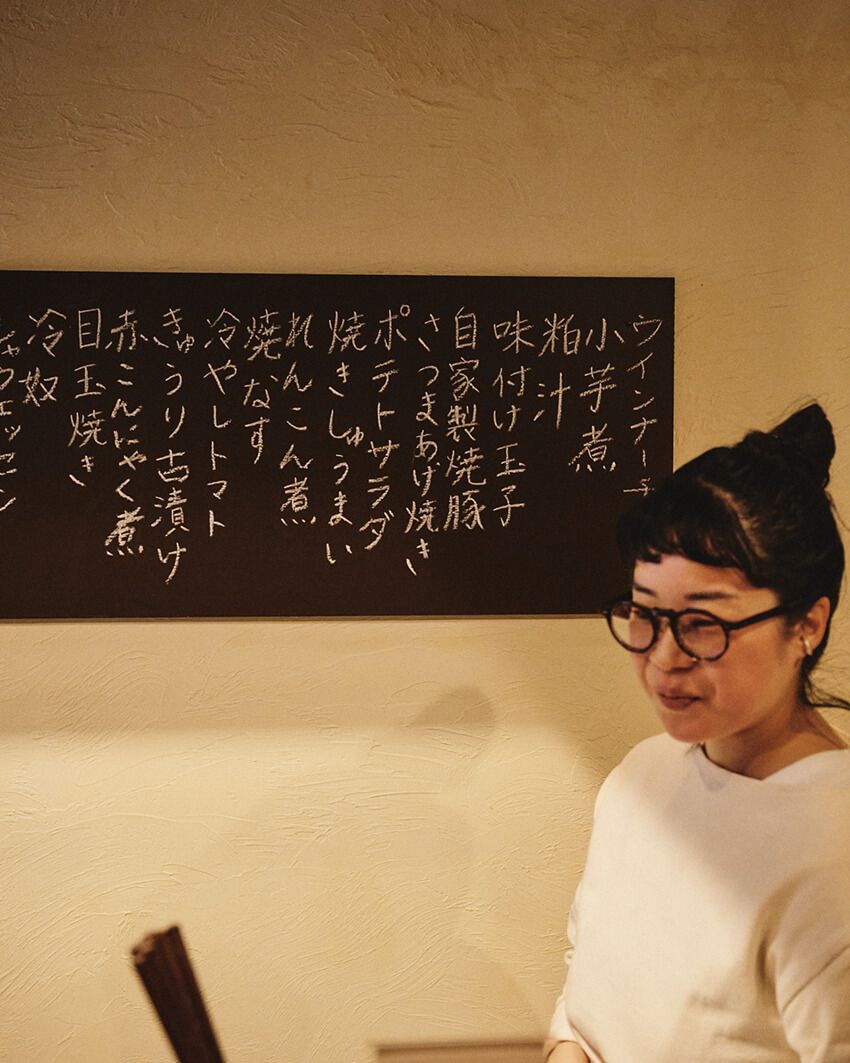 ウインナー
小芋煮
粕汁
味付け玉子
自家製焼豚
さつまあげ焼き
ポテトサラダ
焼きしゅうまい
れんこん煮
焼なす
冷やしトマト
きゅうり古漬け
赤こんにゃく煮
目玉焼き
冷奴